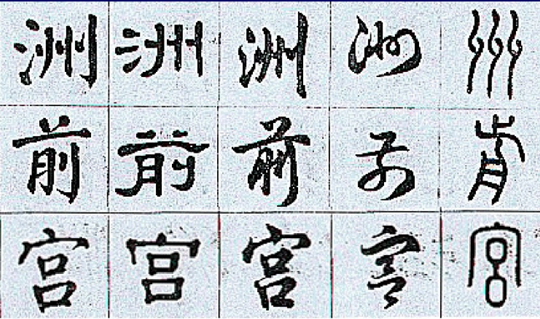 洲洲洲洲州
前前前前歬
宫宫宫宫宫